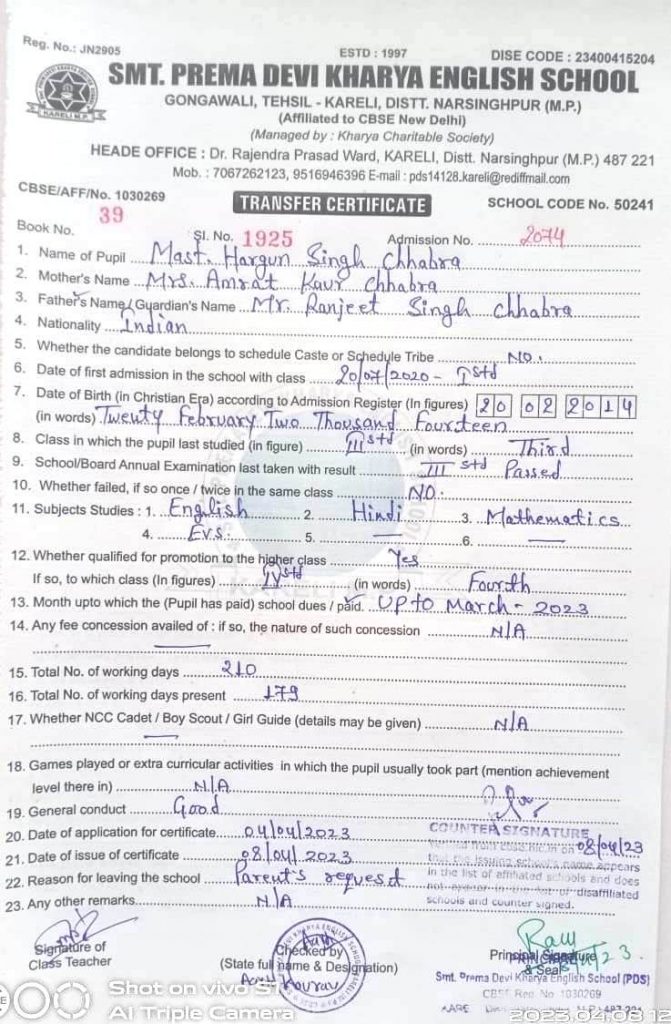 Reg. No.: JN2905
ESTD : 1997
DISE CODE : 23400415204
SMT. PREMA DEVI KHARYA ENGLISH SCHOOL
KARELI M.P.
GONGAWALI, TEHSIL - KARELI, DISTT. NARSINGHPUR (M.P.)
(Affiliated to CBSE New Delhi)
(Managed by : Kharya Charitable Society)
HEADE OFFICE : Dr. Rajendra Prasad Ward, KARELI, Distt. Narsinghpur (M.P.) 487 221
Mob. : 7067262123, 9516946396 E-mail : pds14128.kareli@rediffmail.com
CBSE/AFF/No. 1030269
TRANSFER CERTIFICATE
SCHOOL CODE No. 50241
Book No. 39 Sl. No. 1925 Admission No. 2074
1. Name of Pupil Mast. Hargun Singh Chhabra
2. Mother's Name Mrs. Amrat Kaur Chhabra
3. Father's Name / Guardian's Name Mr. Ranjeet Singh Chhabra
4. Nationality Indian
5. Whether the candidate belongs to schedule Caste or Schedule Tribe NO.
6. Date of first admission in the school with class 20/07/2020 - Istd
7. Date of Birth (in Christian Era) according to Admission Register (In figures) 20 02 2014
(in words) Twenty February Two Thousand Fourteen
8. Class in which the pupil last studied (in figure) IIIstd (in words) Third
9. School/Board Annual Examination last taken with result IIIstd Passed
10. Whether failed, if so once / twice in the same class NO.
11. Subjects Studies : 1. English 2. Hindi 3. Mathematics
4. Evs. 5. — 6. —
12. Whether qualified for promotion to the higher class Yes
If so, to which class (In figures) IVstd (in words) Fourth
13. Month upto which the (Pupil has paid) school dues / paid. UP to March - 2023
14. Any fee concession availed of : if so, the nature of such concession N/A
15. Total No. of working days 210
16. Total No. of working days present 179
17. Whether NCC Cadet / Boy Scout / Girl Guide (details may be given) N/A
18. Games played or extra curricular activities in which the pupil usually took part (mention achievement
level there in) N/A
19. General conduct Good
20. Date of application for certificate 04/04/2023
COUNTER SIGNATURE
08/04/23
21. Date of issue of certificate 08/04/2023
that the issuing school's name appears
22. Reason for leaving the school Parent's request
in the list of affiliated schools and does
not appear in the list of disaffiliated
23. Any other remarks N/A
schools and counter signed.
Signature of
Class Teacher
Checked by
(State full name & Designation)
Principal Signature
& Seal
PRINCIPAL
Smt. Prema Devi Kharya English School (PDS)
CBSE Reg. No. 1030269
Shot on vivo S1
AI Triple Camera
2023.04.08 12